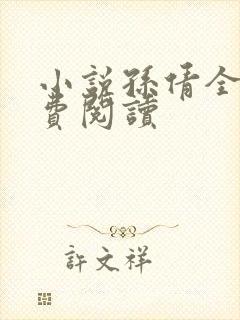 小說孫倩全
費閱讀
許文祥